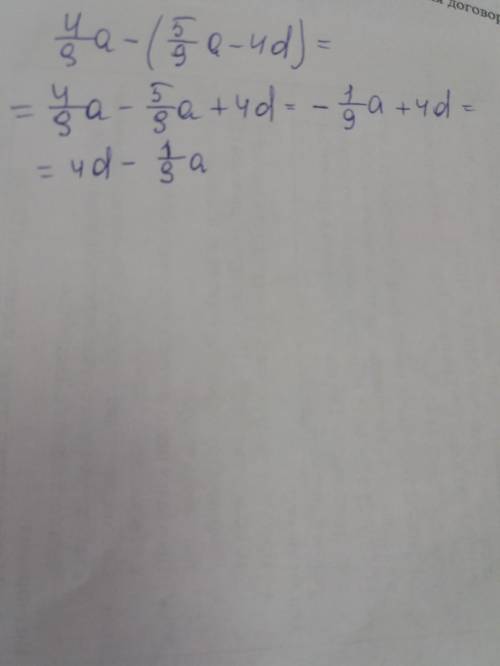 договор
4/9 a - (5/9 a - 4d) =
= 4/9 a - 5/9 a + 4d = - 1/9 a + 4d =
= 4d - 1/9 a